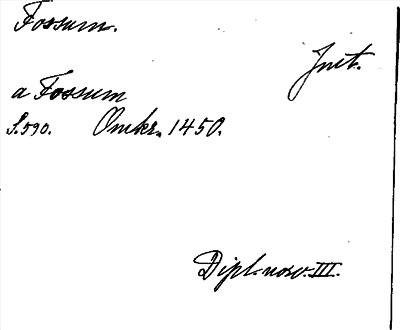 Fossum.
Jnet.
a Fossum
S. 590. Omkr. 1450.
Dipl. norv. III.